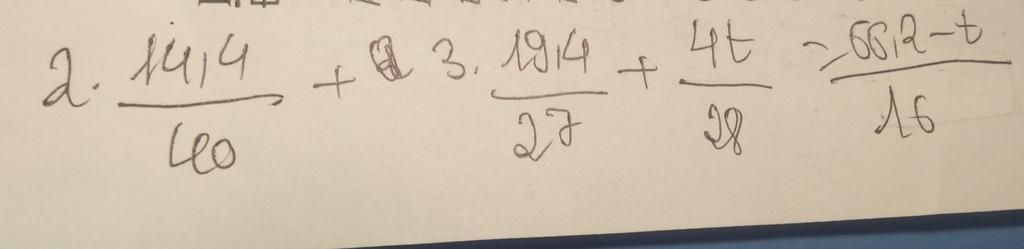 2. 14,4/40 + 3. 19,4/27 + 4t/28 = 66,2-t/16